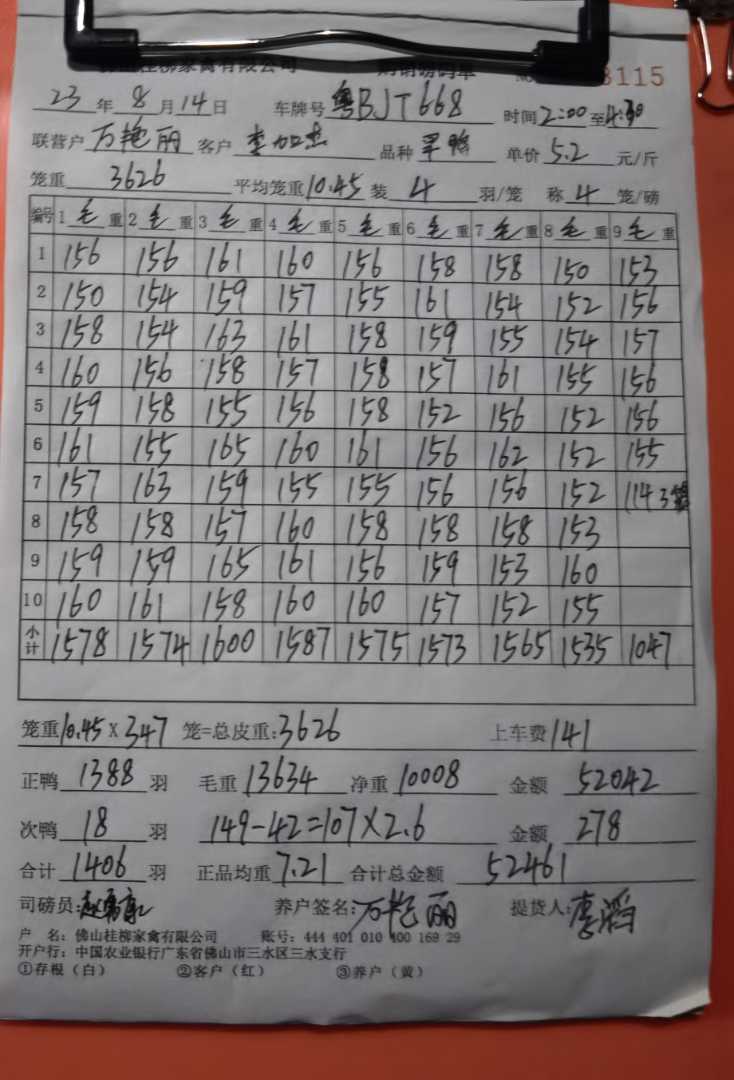 桂柳家禽有限公司 购销磅码单 No 3115
23年8月14日 车牌号 粤BJT668 时间2:00至4:30
联营户 万艳丽 客户 李加 品种 单价 5.2 元/斤
笼重 3626 平均笼重10.45 装 4 羽/笼 称 4 笼/磅
编号 1 毛 重 2 毛 重 3 毛 重 4 毛 重 5 毛 重 6 毛 重 7 毛 重 8 毛 重 9 毛 重
1 156 156 161 160 156 158 158 150 153
2 150 154 159 157 155 161 154 152 156
3 158 154 163 161 158 159 155 154 157
4 160 156 158 157 158 157 161 155 156
5 159 158 155 156 158 152 156 152 156
6 161 155 165 160 161 156 162 152 155
7 157 163 159 155 155 156 156 152 114 3笼
8 158 158 157 160 158 158 158 153
9 159 159 165 161 156 159 153 160
10 160 161 158 160 160 157 152 155
小计 1578 1574 1600 1587 1575 1573 1565 1535 1047
笼重10.45×347 笼=总皮重:3626 上车费141
正鸭 1388 羽 毛重 13634 净重 10008 金额 52042
次鸭 18 羽 149-42=107×2.6 金额 278
合计 1406 羽 正品均重 7.21 合计总金额 52461
司磅员: 养户签名:万艳丽 提货人:李滔
户 名:佛山桂柳家禽有限公司 账号:444 401 010 400 169 29
开户行:中国农业银行广东省佛山市三水区三水支行
①存根(白) ②客户(红) ③养户(黄)